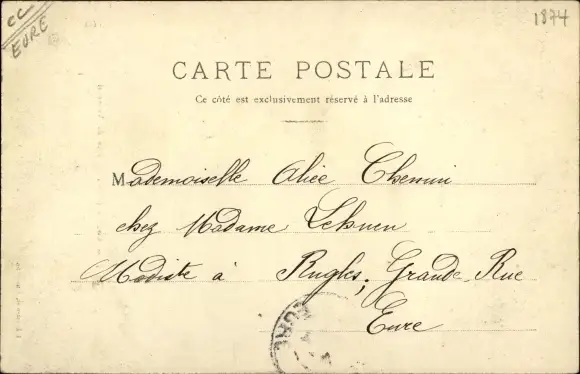 CC
EURE
1874
CARTE POSTALE
Ce côté est exclusivement réservé à l'adresse
Mademoiselle Alice Chemin
chez Madame Lehuen
Modiste à Rugles, Grande Rue
Eure